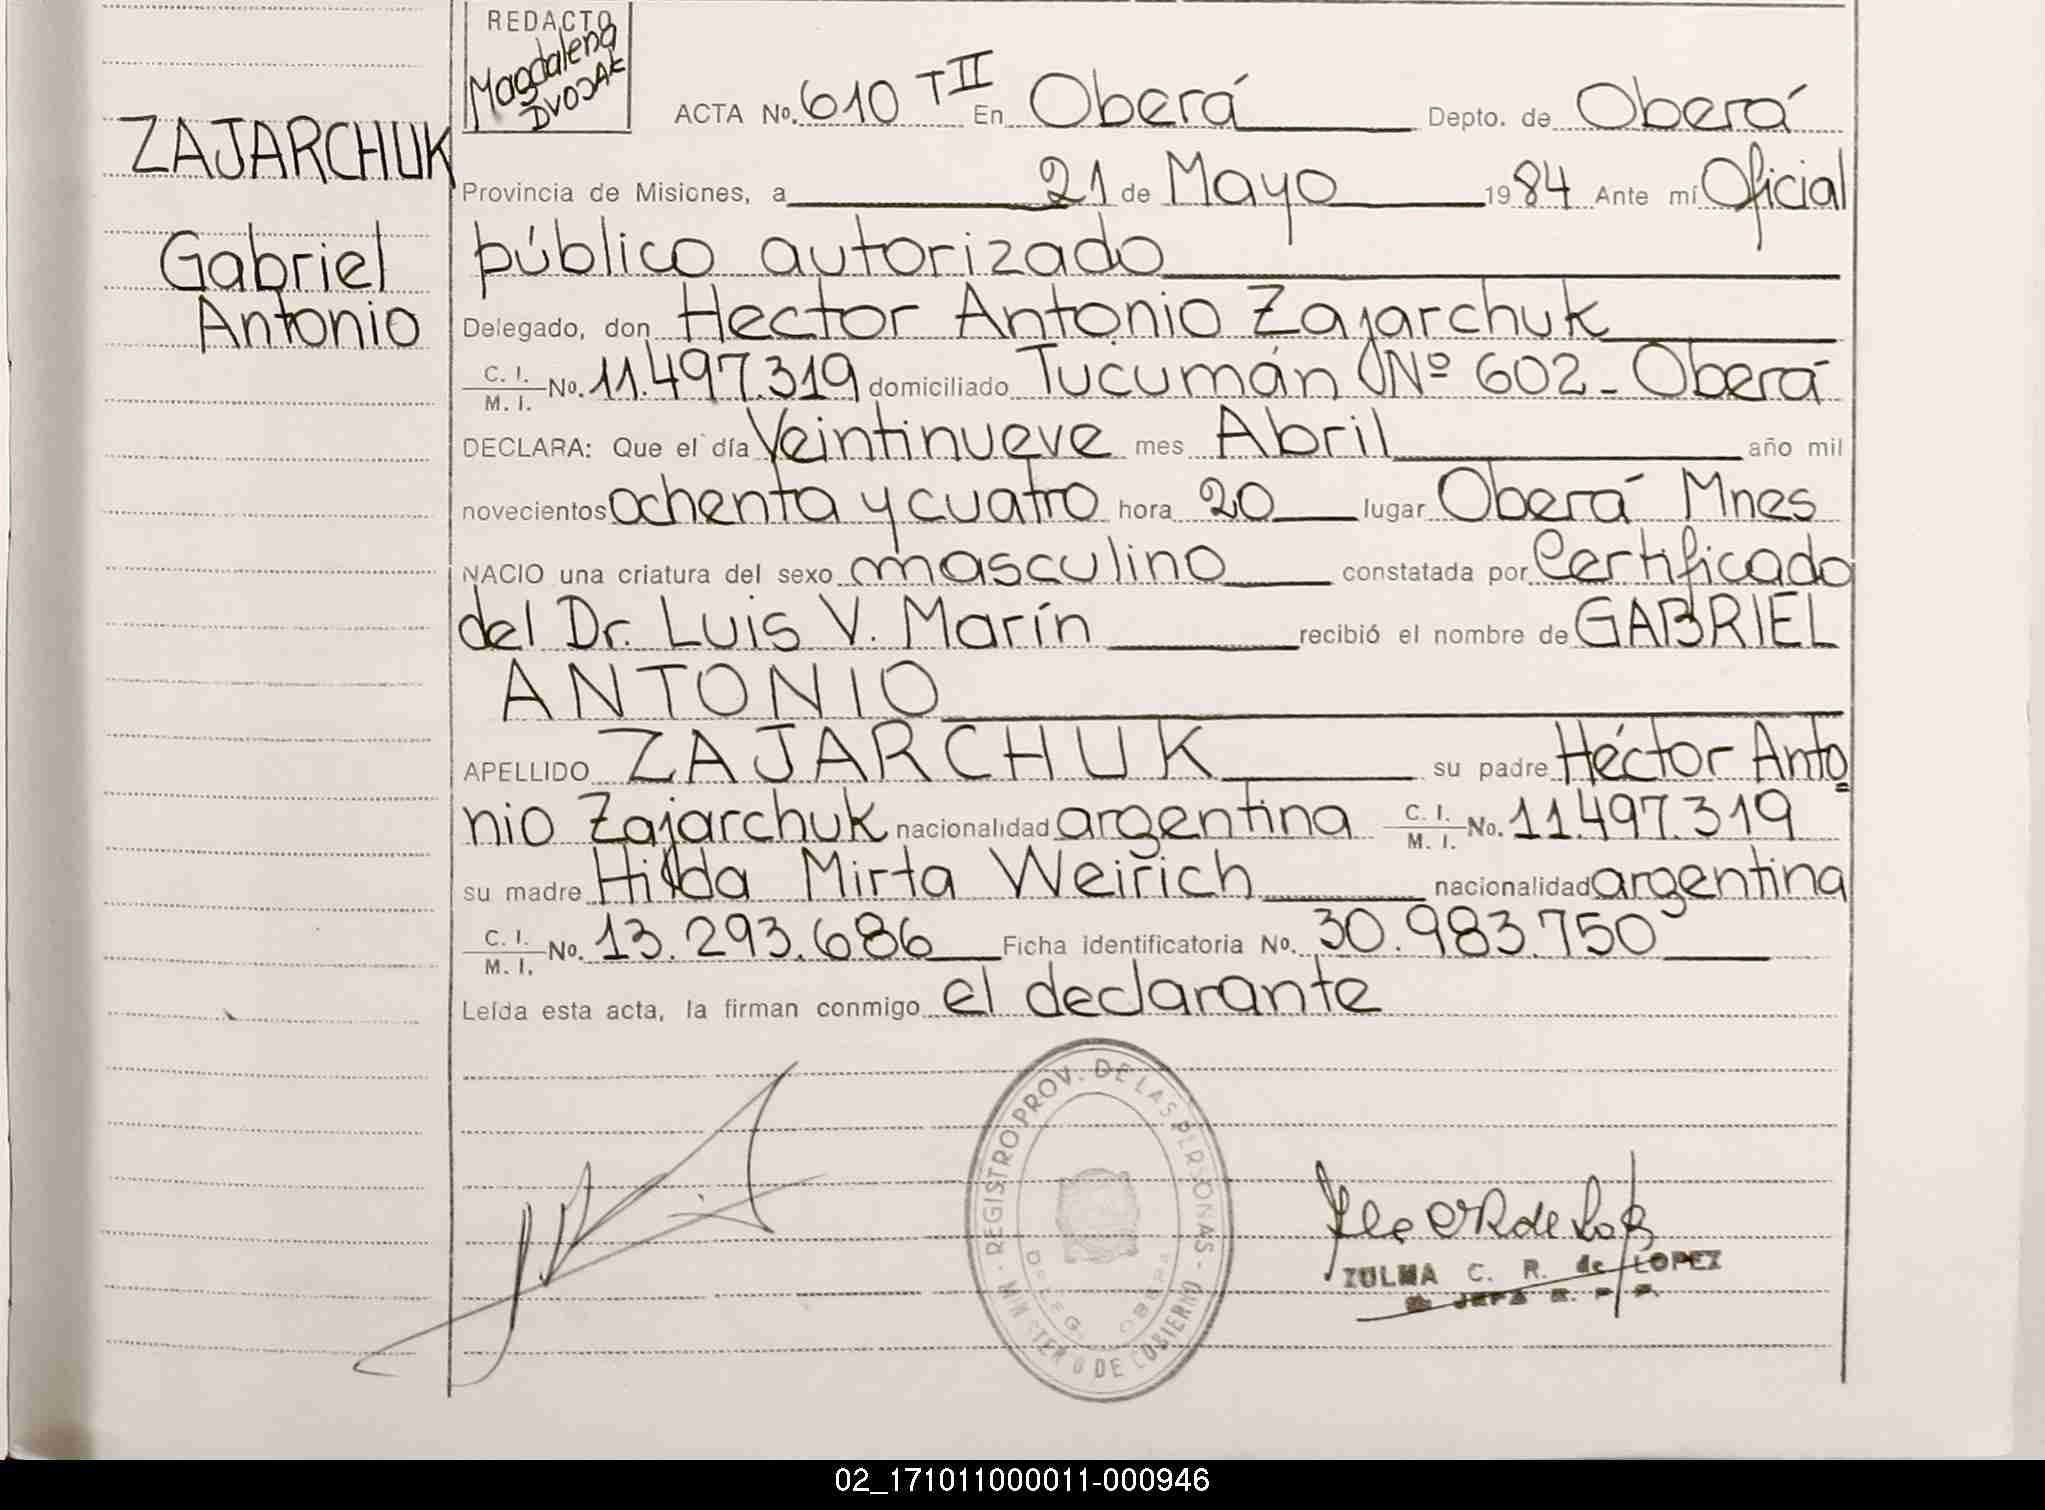 REDACTO
Magdalena
DVOJAK
ZAJARCHUK
Gabriel
Antonio
ACTA No. 610 TII En Oberá Depto. de Oberá
Provincia de Misiones, a 21 de Mayo 1984 Ante mí Oficial
público autorizado
Delegado, don Hector Antonio Zajarchuk
C. I. M. I. No. 11.497.319 domiciliado Tucumán Nº 602 - Oberá
DECLARA: Que el día Veintinueve mes Abril año mil
novecientos ochenta y cuatro hora 20 lugar Oberá Mnes
NACIO una criatura del sexo masculino constatada por Certificado
del Dr. Luis V. Marín recibió el nombre de GABRIEL
ANTONIO
APELLIDO ZAJARCHUK su padre Héctor Anto
nio Zajarchuk nacionalidad argentina C. I. M. I. No. 11.497.319
su madre Hilda Mirta Weirich nacionalidad argentina
C. I. M. I. No. 13.293.686 Ficha identificatoria No. 30.983.750
Leída esta acta, la firman conmigo el declarante
REGISTRO PROV. DE LAS PERSONAS
MINISTERIO DE GOBIERNO
DELEG. OBERA
ZULMA C. R. de LOPEZ
JEFA R. P. P.
02_171011000011-000946